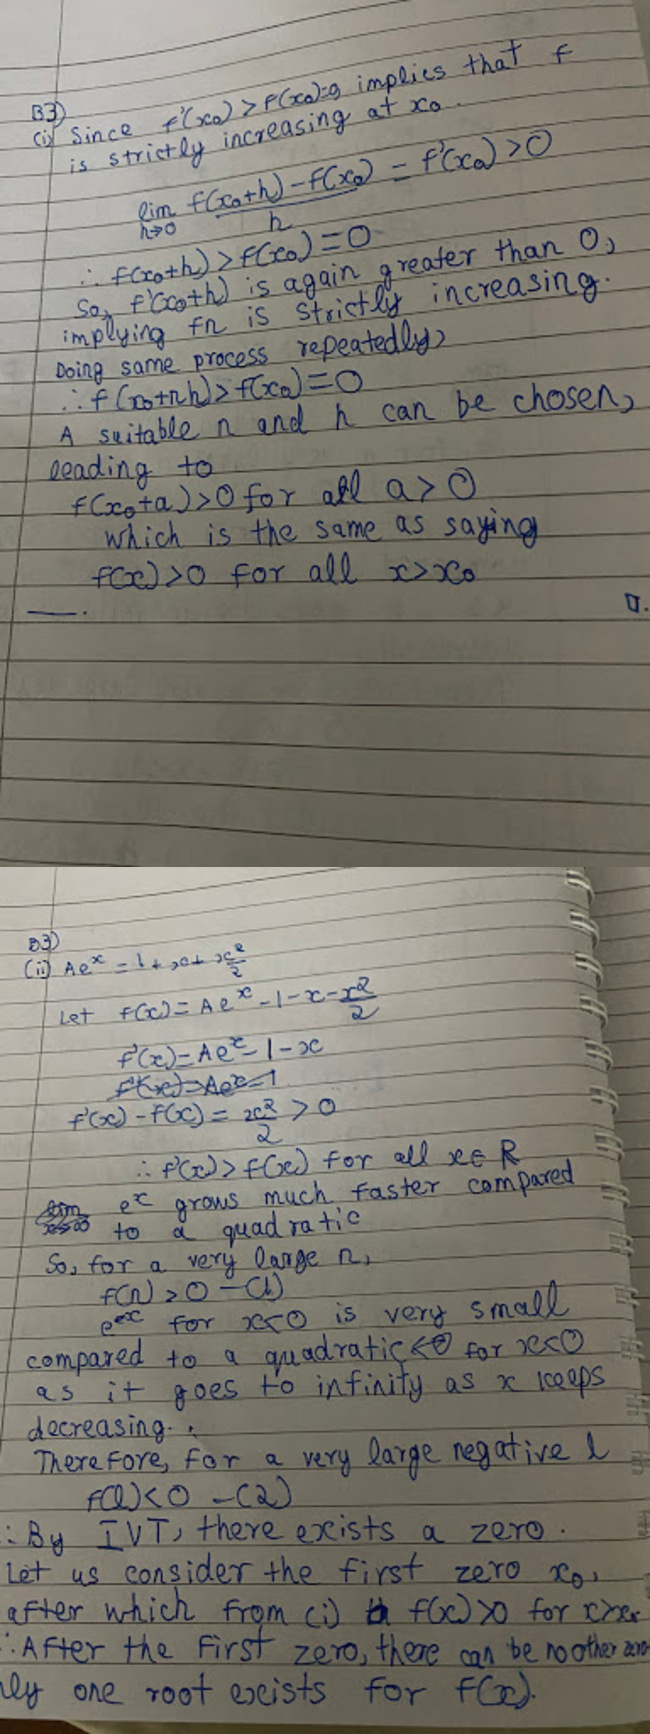 B3)
(i) Since f'(x₀) > f(x₀)=0 implies that f
is strictly increasing at x₀.
lim h→0 f(x₀+h) - f(x₀) / h = f'(x₀) > 0
∴ f(x₀+h) > f(x₀) = 0
So, f'(x₀+h) is again greater than 0,
implying fn is strictly increasing.
Doing same process repeatedly,
∴ f(x₀+nh) > f(x₀) = 0
A suitable n and h can be chosen,
leading to
f(x₀+a) > 0 for all a > 0
which is the same as saying
f(x) > 0 for all x > x₀
B3)
(ii) Ae^x = 1 + x + x²/2
Let f(x) = Ae^x - 1 - x - x²/2
f'(x) = Ae^x - 1 - x
f'(x) = Ae^x - 1
f'(x) - f(x) = x²/2 > 0
∴ f'(x) > f(x) for all x ∈ R
lim x→∞ e^x grows much faster compared
to a quadratic
So, for a very large n,
f(n) > 0 - (1)
e^x for x<0 is very small
compared to a quadratic <0 for x<0
as it goes to infinity as x keeps
decreasing.
Therefore, for a very large negative l
f(l) < 0 - (2)
∴ By IVT, there exists a zero.
Let us consider the first zero x₀,
after which from (i) f(x) > 0 for x > x₀
∴ After the first zero, there can be no other zero
ly one root exists for f(x).